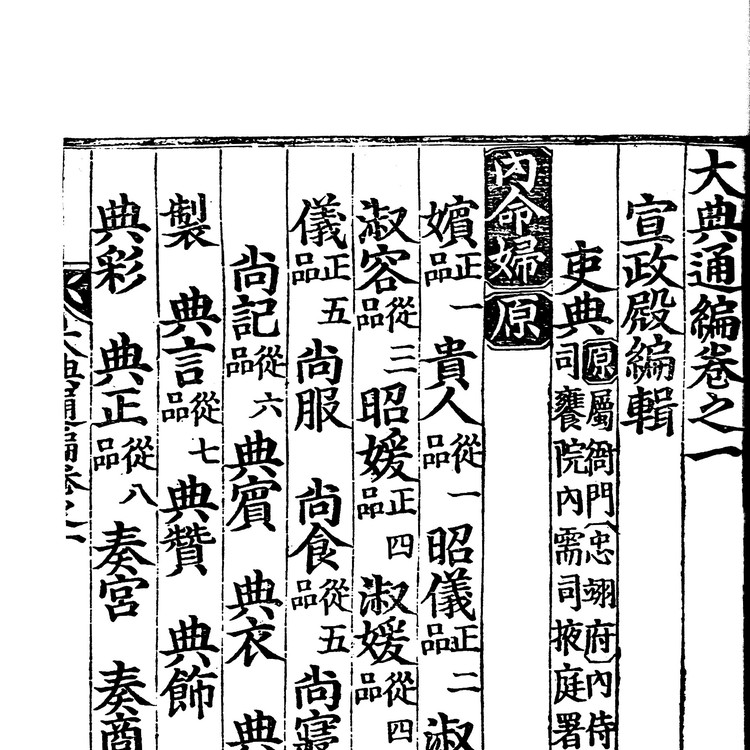 大典通編卷之一
宣政殿編輯
吏典 原屬衙門 忠翊府 內侍
司饔院內需司掖庭署
內命婦 原
嬪 正一品 貴人 從一品 昭儀 正二品 淑
淑容 從三品 昭媛 正四品 淑媛 從四品
儀 正五品 尚服 尚食 從五品 尚寢
尚記 從六品 典賓 典衣 典
製 典言 從七品 典贊 典飾
典彩 典正 從八品 奏宮 奏商
大典通編卷之一